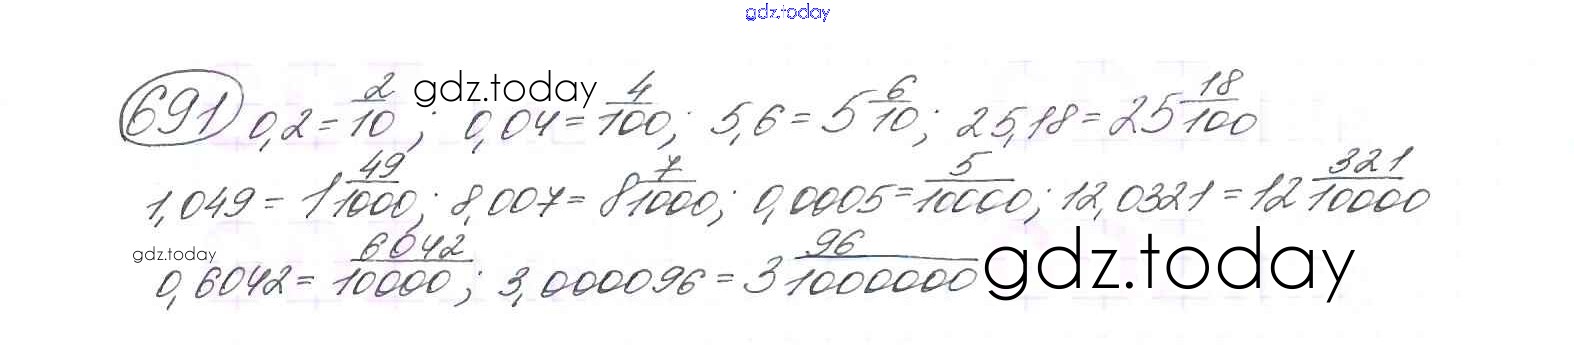 gdz.today
691 0,2 = 2/10 ; 0,04 = 4/100 ; 5,6 = 5 6/10 ; 25,18 = 25 18/100 gdz.today
1,049 = 1 49/1000 ; 8,007 = 8 7/1000 ; 0,0005 = 5/10000 ; 12,0321 = 12 321/10000
gdz.today
0,6042 = 6042/10000 ; 3,000096 = 3 96/1000000 gdz.today